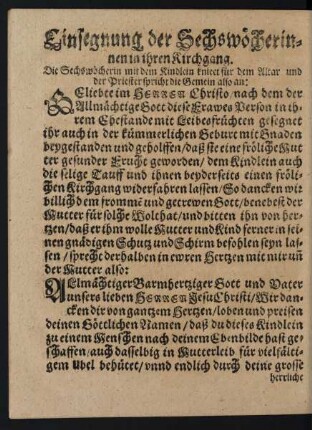 Einsegnung der Sechswöcherin-
nen in ihren Kirchgang.
Die Sechswöcherin mit dem Kindlein kniet für dem Altar und
der Priester spricht die Gemein also an:
GEliebte im HERREN Christo / nach dem der
Allmächtige Gott diese Frawes Person in ih-
rem Ehestande mit Leibesfrüchten gesegnet
ihr auch in der kümmerlichen Geburt mit Gnaden
beygestanden und geholffen / daß sie eine fröliche Mut
ter gesunder Frucht geworden / dem Kindlein auch
die selige Tauff und ihnen beyderseits einen fröli-
chen Kirchgang widerfahren lassen / So dancken wir
billich dem fromme und getrewen Gott / benebest der
Mutter für solche Wolthat / und bitten ihn von her-
tzen / daß er ihm wolle Mutter und Kind ferner in sei-
nen gnädigen Schutz und Schirm befohlen seyn las-
sen / sprecht derhalben in ewren Hertzen mit mir uñ
der Mutter also:
ALlmächtiger Barmhertziger Gott und Vater
unsers lieben HERREN Jesu Christi / Wir dan-
cken dir von gantzem Hertzen / loben und preisen
deinen Göttlichen Namen / daß du dieses Kindlein
zu einem Menschen nach deinem Ebenbilde hast ge-
schaffen / auch dasselbig in Mutterleib für vielfälti-
gem Ubel behütet / vnnd endlich durch deine grosse
herrliche